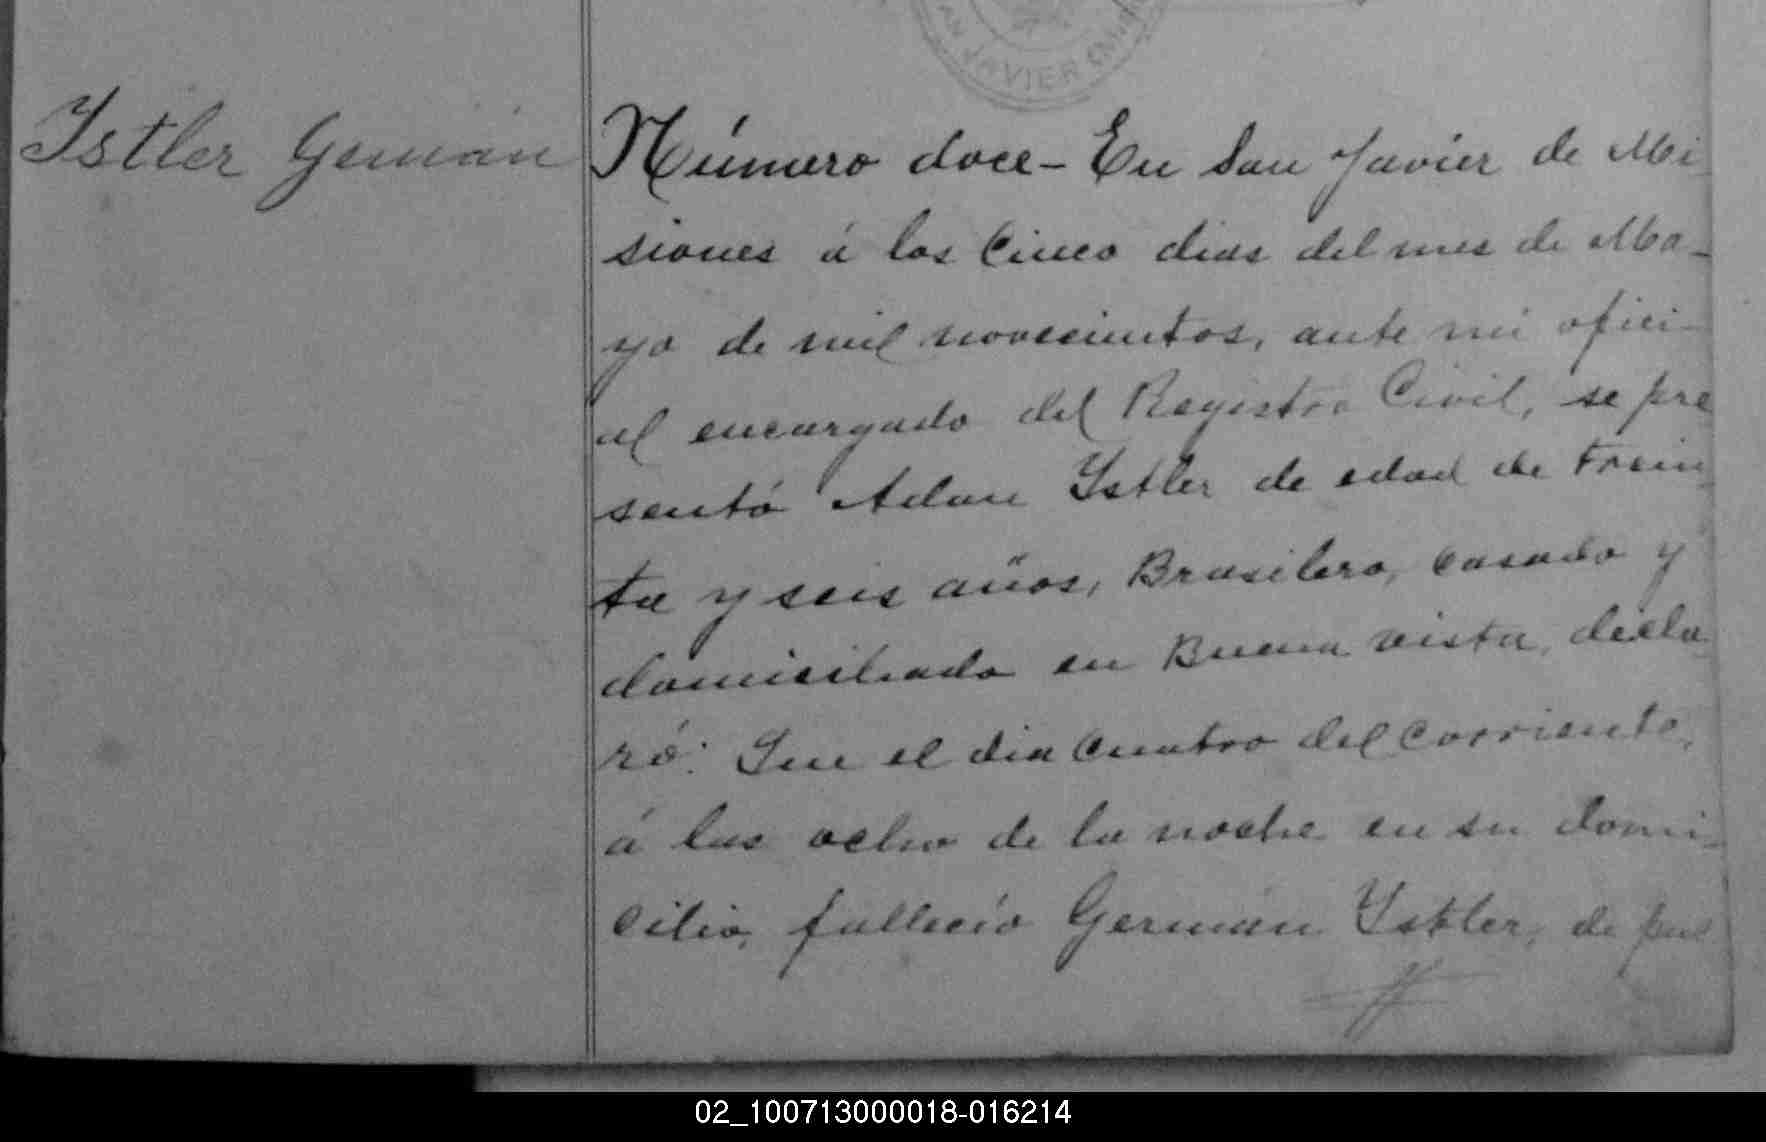 SAN JAVIER
Istler Germán
Número doce - En San Javier de Mi-
siones á los Cinco dias del mes de Ma-
yo de mil novecientos, ante mi ofici-
al encargado del Registro Civil, se pre
sentó Adan Istler de edad de trein
ta y seis años, Brasilero, casado y
domiciliado en Buena vista, decla
ró: Que el dia cuatro del corriente,
á las ocho de la noche en su domi-
cilio, falleció Germán Istler, de
02_100713000018-016214